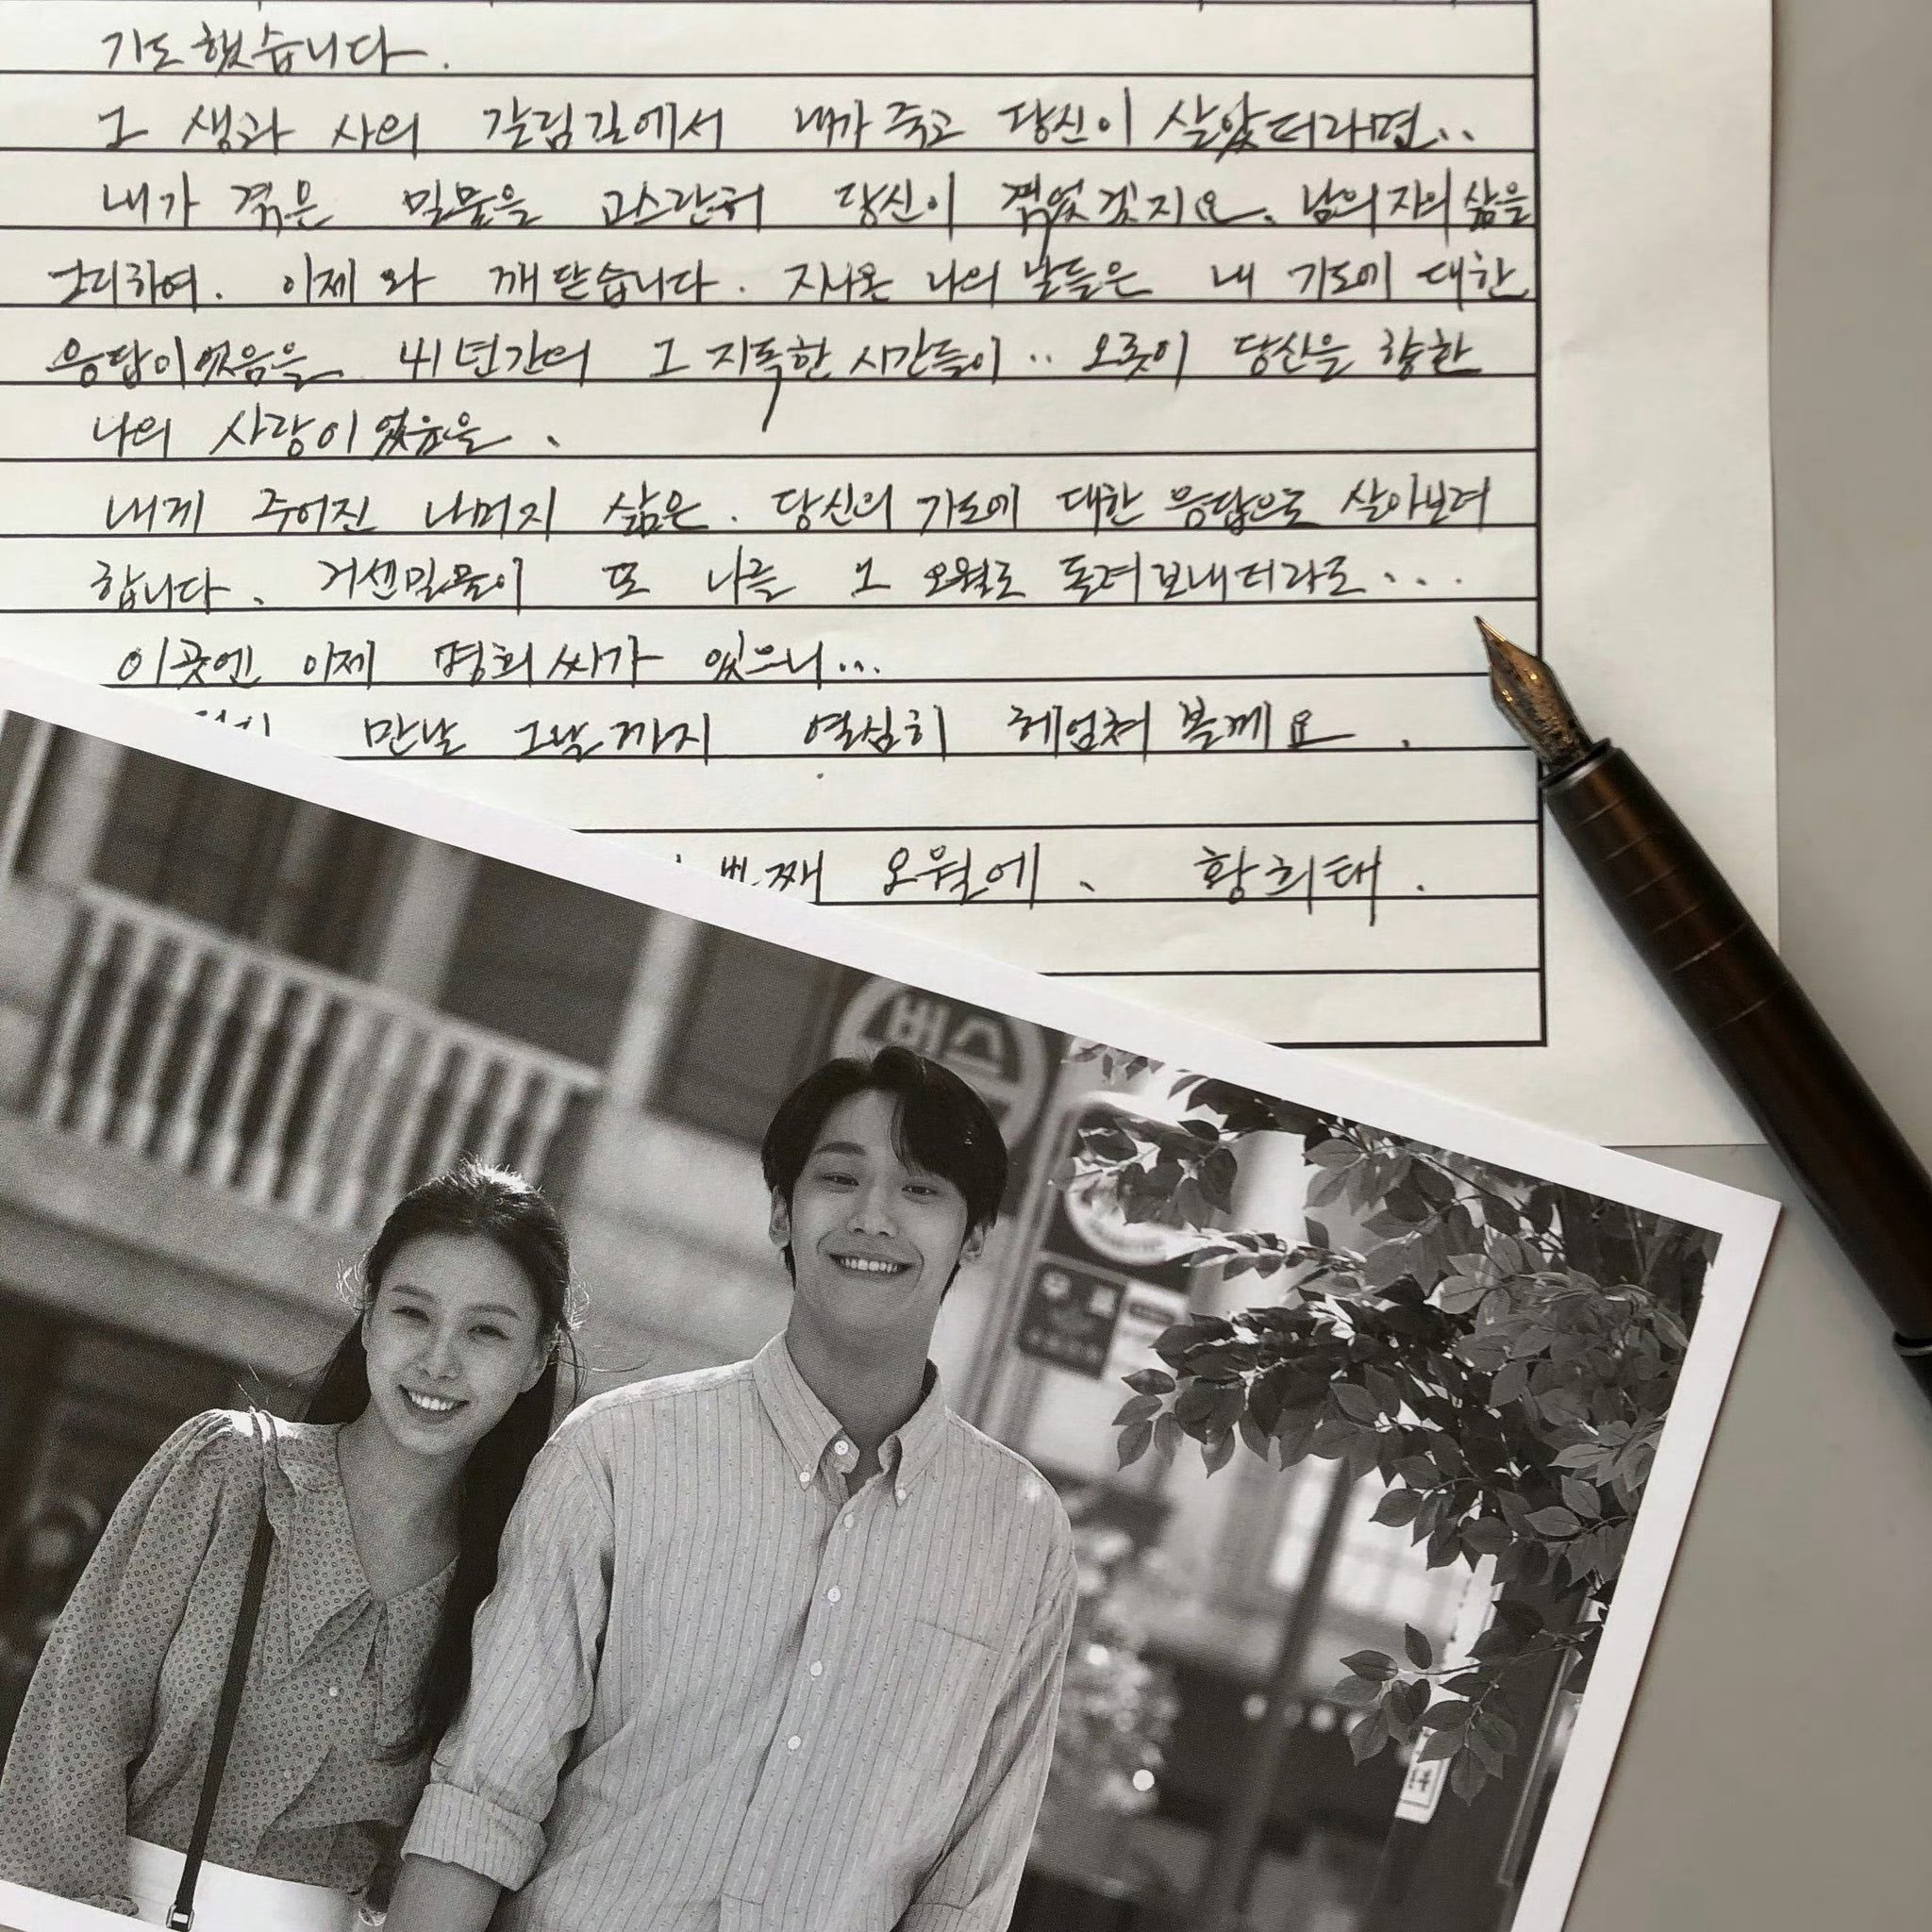 기도했습니다.
그 생과 사의 갈림길에서 내가 죽고 당신이 살았더라면..
내가 겪은 밀물을 고스란히 당신이 겪었겠지요. 남은자의 삶을
그리하여. 이제와 깨닫습니다. 지나온 나의 날들은 내 기도에 대한
응답이었음을. 41년간의 그 지독한 시간들이.. 오롯이 당신을 향한
나의 사랑이었음을.
내게 주어진 나머지 삶은. 당신의 기도에 대한 응답으로 살아보려
합니다. 거센밀물이 또 나를 그 오월로 돌려보내더라도...
이곳엔 이제 명희씨가 있으니...
만날 그날까지 열심히 헤엄쳐볼께요.
번째 오월에. 황희태.
버스